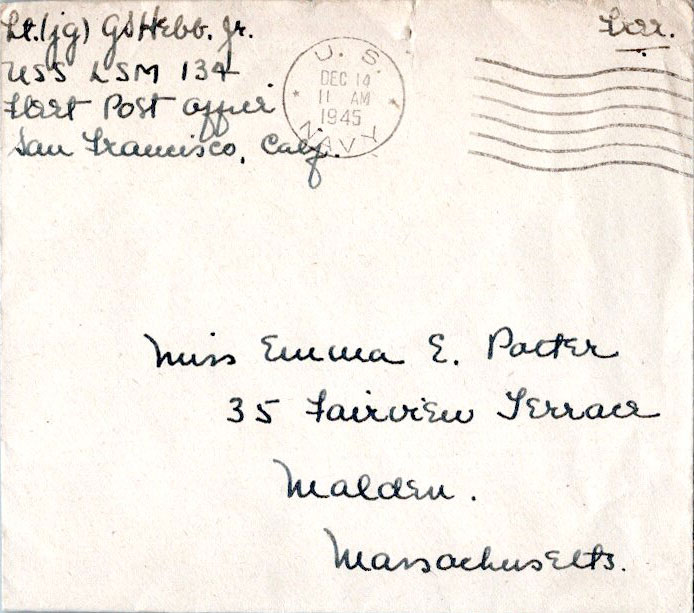 Lt.(jg) GSHebb. Jr.
USS LSM 134
Fleet Post Office
San Francisco, Calif.
U. S.
DEC 14
11 AM
1945
NAVY
Free.
Miss Emma E. Potter
35 Fairview Terrace
Malden.
Massachusetts.